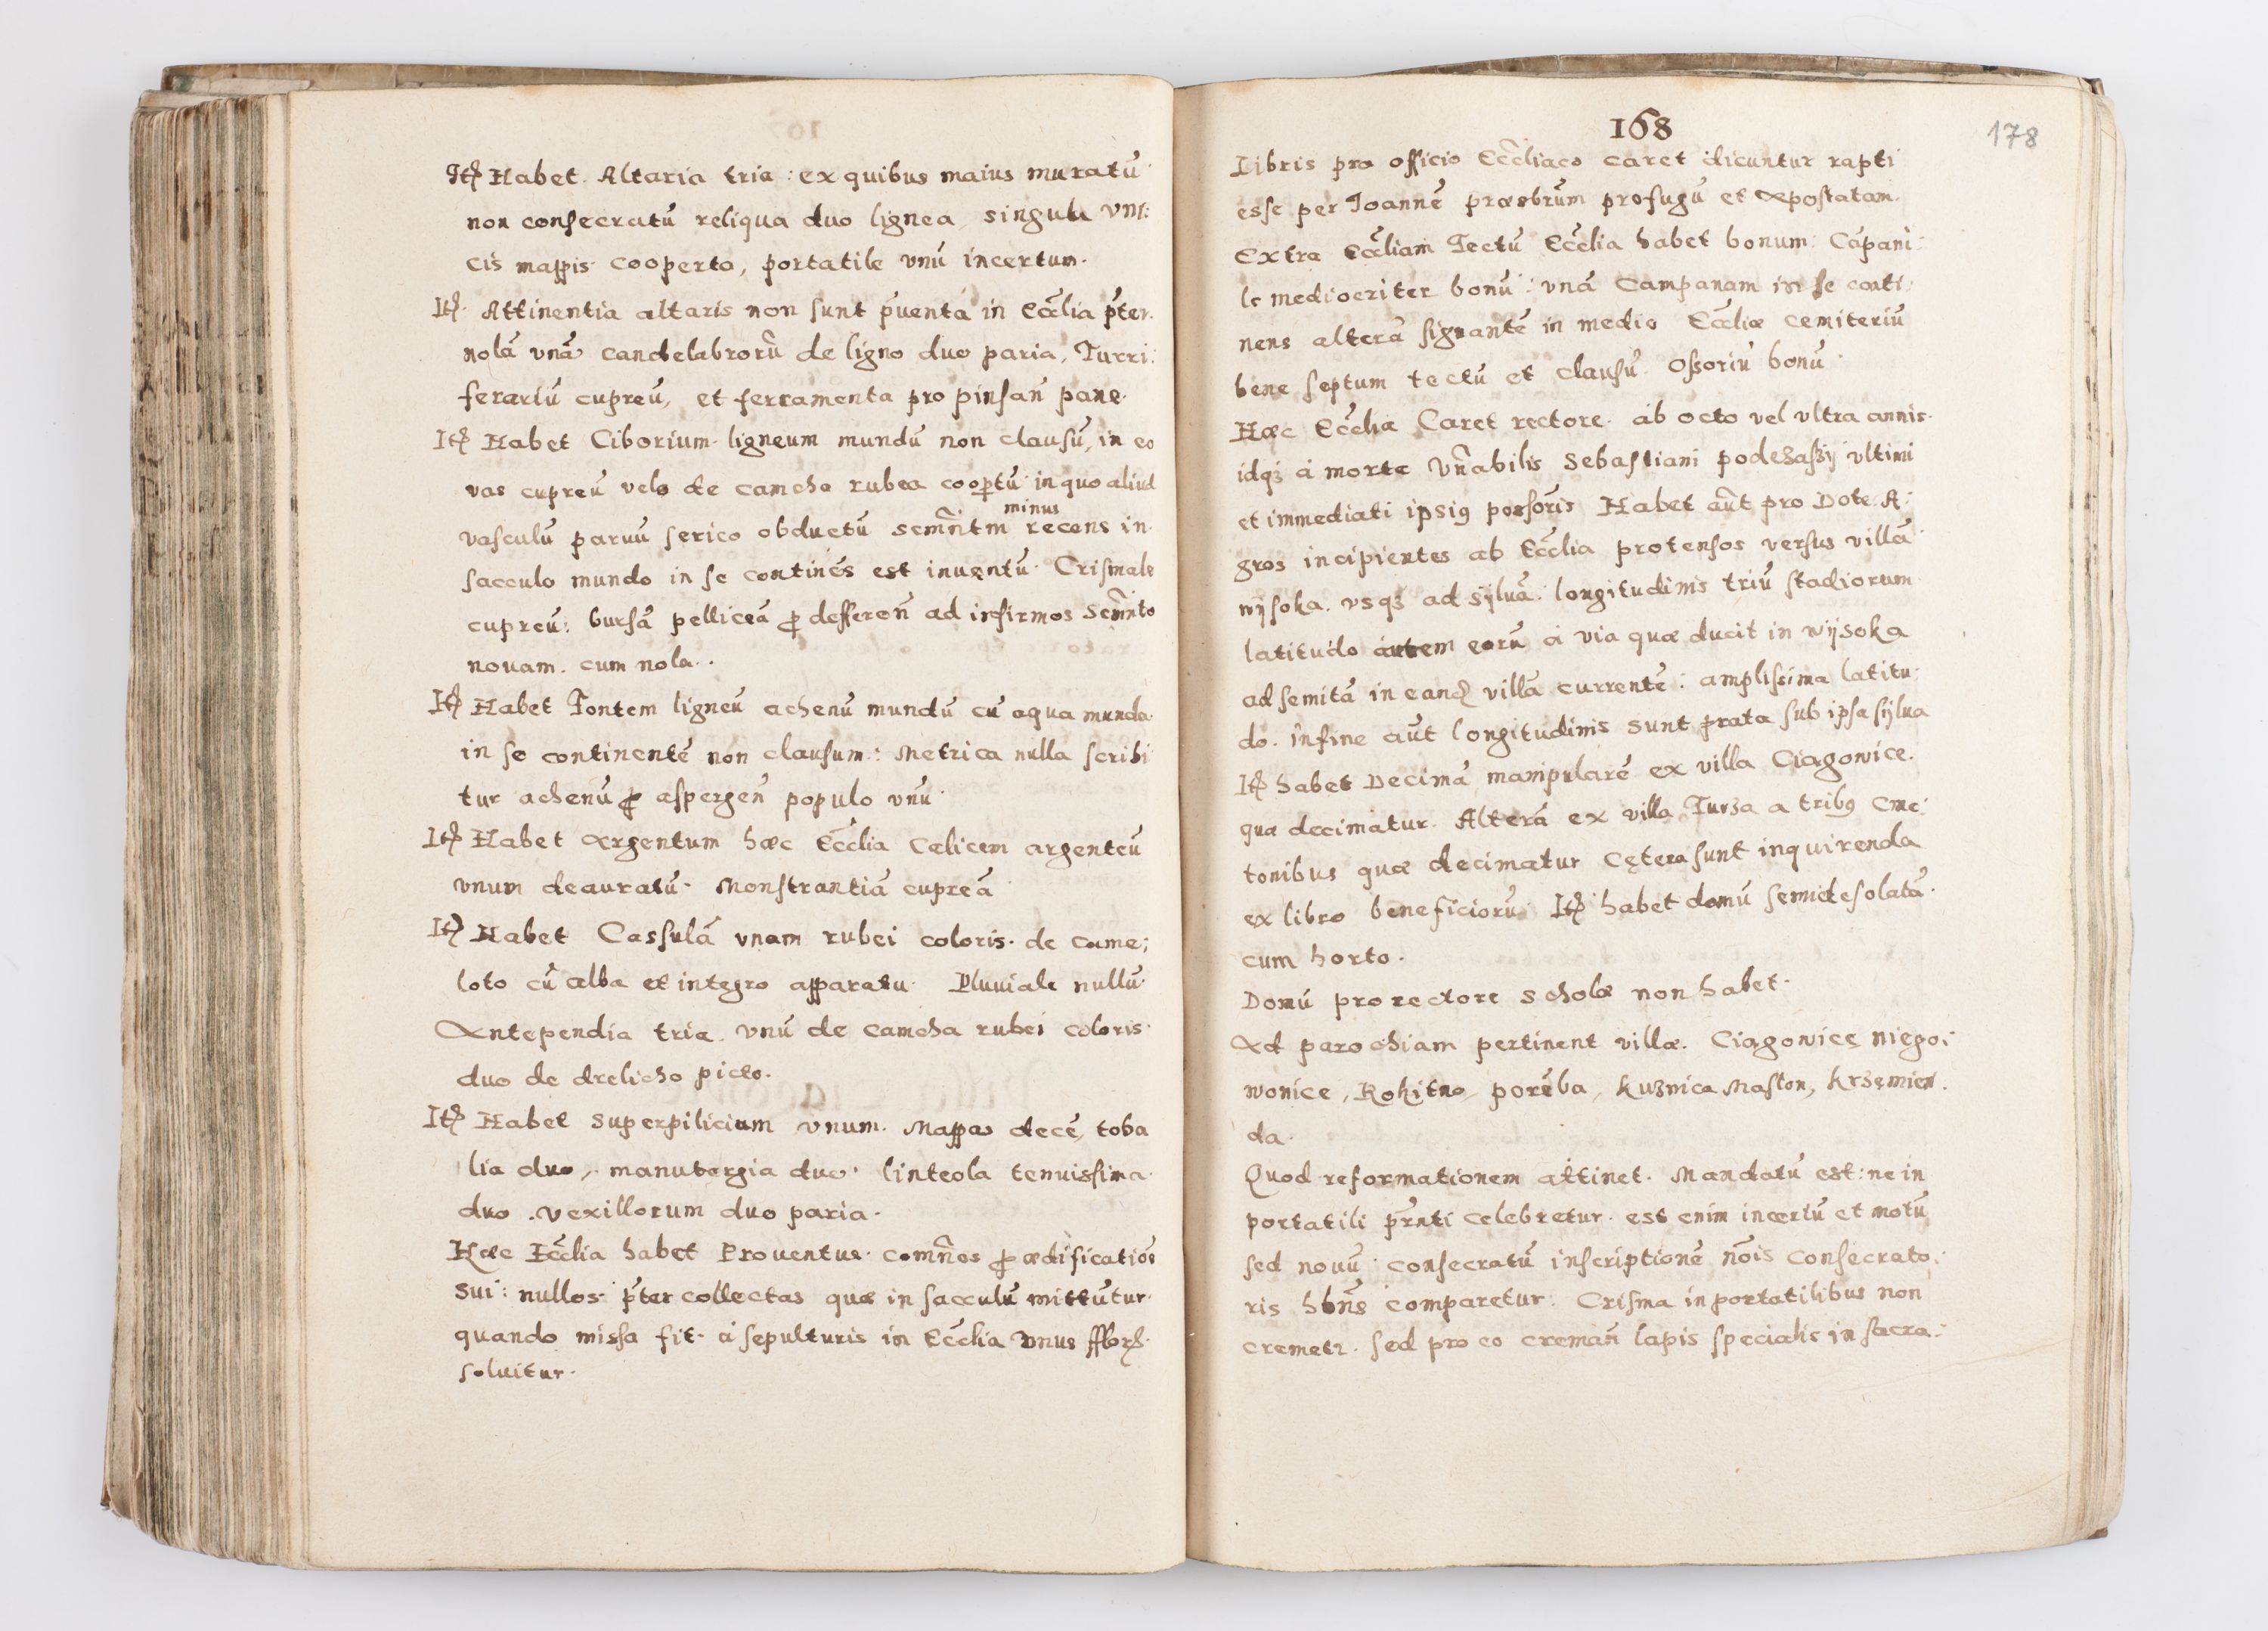 Itꝫ Habet Altaria tria : ex quibus maius muratū
non consecratū reliqua duo lignea, singula vni:
cis mappis cooperta, portatile vnū incertum.
Itꝫ Attinentia altaris non sunt p̄uenta in Eccl̄ia p̄ter
nolā vnā candelabrorū de ligno duo paria, Turri:
ferariū cupreū, et ferramenta pro pinsan̄ pane.
Itꝫ Habet Ciborium ligneum mundū non clausū, in eo
vas cupreū velo de camcha rubea coop̄tū in quo aliud
vasculū paruū serico obductū scmn̄tm minus recens in
sacculo mundo in se continēs est inuentū. Crismale
cupreū: bursā pelliceā ꝓ defferen̄ ad infirmos Scmn̄to
nouam. cum nola..
Itꝫ Habet Fontem ligneū achenū mundū cū aqua munda
in se continentē non clausum: Metrica nulla scribi
tur achenū ꝓ aspergen̄ populo vnū.
Itꝫ Habet Argentum hæc Eccl̄ia Calicem argenteū
vnum deauratū. Monstrantiā cupreā
Itꝫ Habet Cassulā vnam rubei coloris. de came;
loto cū alba et integro apparatu. Pluuiale nullū.
Antependia tria. vnū de camcha rubei coloris.
duo de drelicho picto.
Itꝫ Habet superpilicium vnum. Mappas decē, toba
lia duo, manutergia duo. linteola tenuissima
duo. vexillorum duo paria.
Hæc Eccl̄ia habet Prouentus. comn̄es ꝓ ædificatiōe
sui: nullos. p̄ter collectas quæ in sacculū mittūtur.
quando missa fit. a sepulturis in Eccl̄ia vnus fflorꝫ.
soluitur.
168
178
Libris pro officio Eccl̄iaco caret dicuntur rapti
esse per Joannē præsbrūm profugū et Apostatam.
Extra Eccl̄iam Tectū Eccl̄ia habet bonum: Cāpani:
le mediocriter bonū : vnā Campanam in se conti:
nens alterā signantē in medio Eccl̄iæ cemiteriū
bene septum tectū et clausū. Ossoriū bonū.
Hæc Eccl̄ia Caret rectore. ab octo vel vltra annis.
idqꝫ à morte Vn̄abilis Sebastiani podeszassij vltimi
et immediati ipsiꝰ possor̄is Habet aūt pro Dote. A:
gros incipientes ab Eccl̄ia protensos versus villā
wijsoka. vsqꝫ ad sijluā. longitudinis triū stadiorum
latitudo autem eorū à via quæ ducit in wijsoka
ad semitā in eandꝫ villā currentē: amplissima latitu:
do. in fine aūt longitudinis sunt prata sub ipsa sijlua
Itꝫ habet Decimā manipularē ex villa Ciągowice.
quæ decimatur. Alterā ex villa Turza a tribꝰ Cme:
tonibus quæ decimatur Cętera sunt inquirenda
ex libro beneficiorū. Itꝫ habet domū semidesolatā.
cum horto.
Domū pro rectore scholæ non habet.
Ad parochiam pertinent villæ. Ciągowice, niego:
wonice, Rokitno, porēba, kuznica Maston, krzemien.
da.
Quod reformationem attinet. Mandatū est: ne in
portatili pr̄nti celebretur. est enim incertū et motū
sed nouū consecratū inscriptionē nōis consecrato:
ris hbn̄s comparetur. Crisma in portatilibus non
cremetr. sed pro eo creman̄ lapis specialis in sacra: